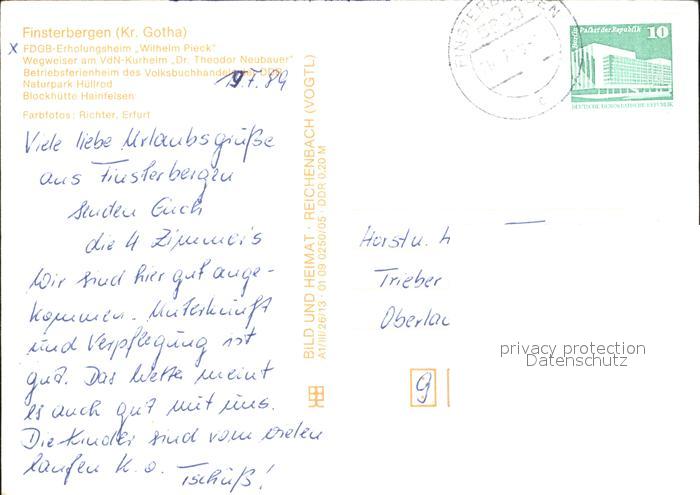 Finsterbergen (Kr. Gotha)
X FDGB-Erholungsheim „Wilhelm Pieck"
Wegweiser am VdN-Kurheim „Dr. Theodor Neubauer"
Betriebsferienheim des Volksbuchhandel DDR
Naturpark Hüllrod
Blockhütte Hainfelsen
Farbfotos: Richter, Erfurt
9.7.89
Viele liebe Urlaubsgrüße
aus Finsterbergen
senden Euch
die 4 Zimmers
Wir sind hier gut ange-
kommen. Unterkunft
und Verpflegung ist
gut. Das Wetter meint
es auch gut mit uns.
Die Kinder sind vom vielen
laufen k.o. Tschüß!
BILD UND HEIMAT · REICHENBACH (VOGTL)
A1/III/26/13 01 09 0250/05 DDR 0,20 M
FINSTERBERGEN
Berlin Palast der Republik 10
DEUTSCHE DEMOKRATISCHE REPUBLIK
Horst u. H
Trieber
Oberlau
9
privacy protection
Datenschutz